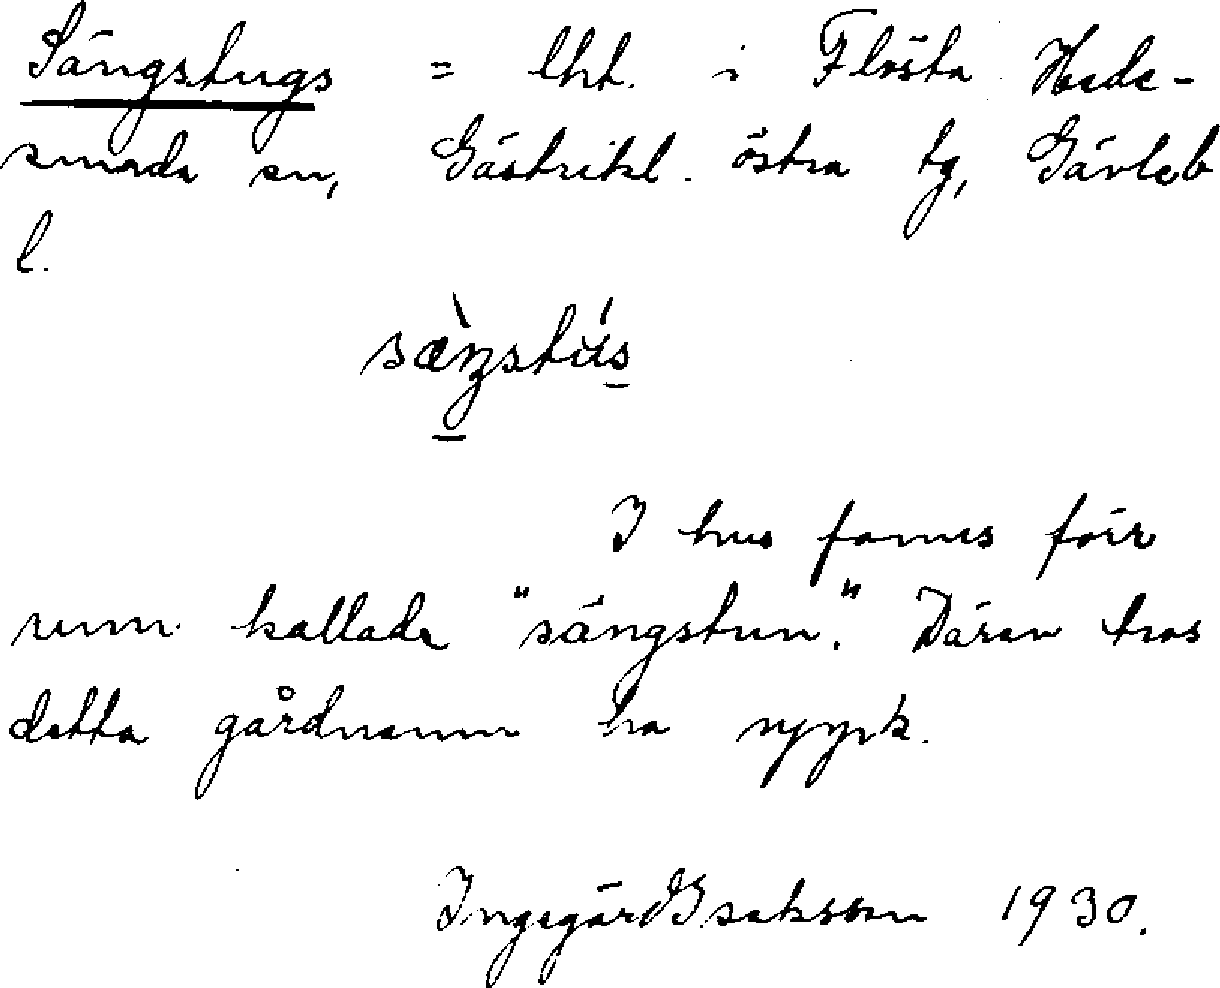 Sängstugs = lht. i Flästa Hede-
sunda sn, Gästrikl. östra tg, Gävleb
l.
sæ̀ŋstús
I hus fanns förr
rum kallade "sängstun". Därav tros
detta gårdnamn ha uppk.
Ingegärd Isaksson 1930.